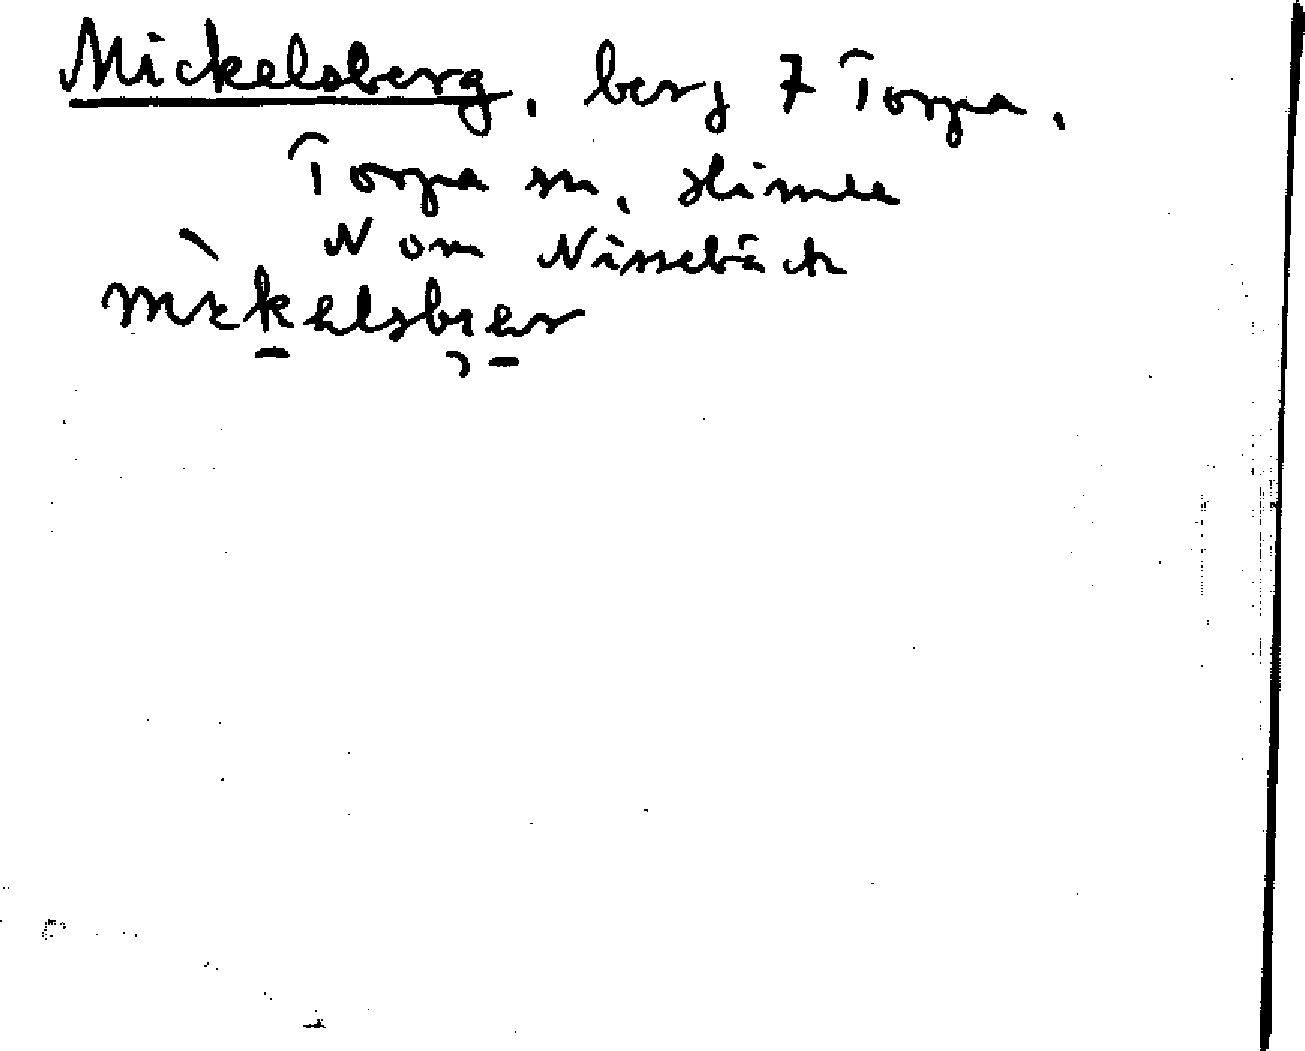 Mickelsberg, berg 7 Torpa,
Torpa sn, Himle
N om Nissebäck
mìkelsbıer